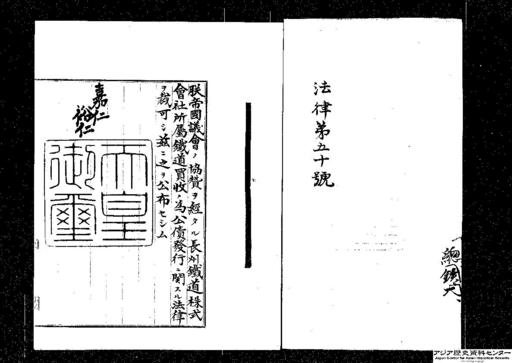 法律第五十號
朕帝國議會ノ協贊ヲ經タル長州鐵道株式
會社所屬鐵道買收ノ爲公債發行ニ關スル法律
ヲ裁可シ茲ニ之ヲ公布セシム
嘉仁
裕仁
天皇
御璽
アジア歴史資料センター
Japan Center for Asian Historical Records